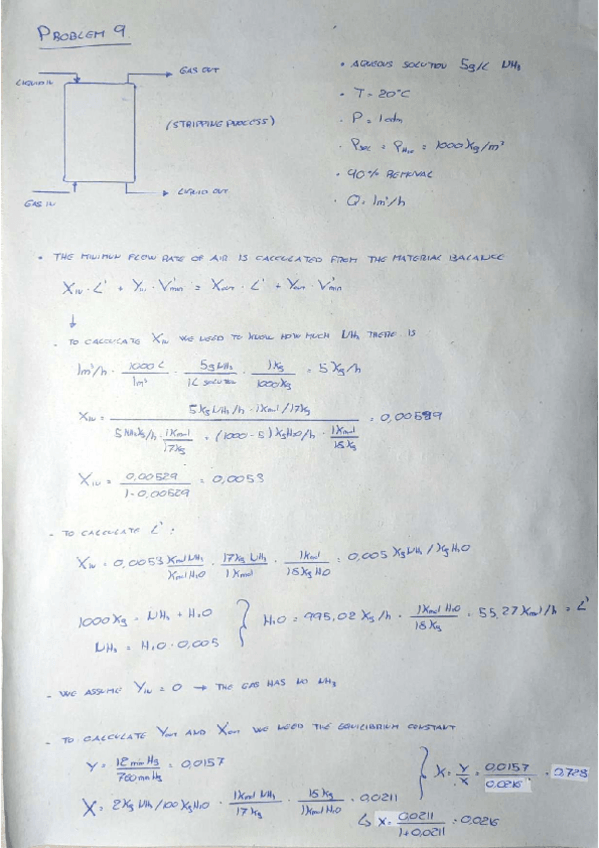 PROBLEM 9.
LIQUID IN
GAS OUT
(STRIPPING PROCESS)
GAS IN
LIQUID OUT
• AQUEOUS SOLUTION 5g/L NH3
• T = 20°C
• P = 1 atm
• ρsec = ρH2O = 1000 Kg/m³
• 90% REMOVAL
• Q = 1m³/h
• THE MINIMUN FLOW RATE OF AIR IS CALCULATED FROM THE MATERIAL BALANCE
XIN · L' + YIN · V'min = XOUT · L' + YOUT · V'min
↓
- TO CALCULATE XIN WE NEED TO KNOW HOW MUCH NH3 THERE IS
1m³/h · 1000 L / 1m³ · 5g NH3 / 1L · 1Kg / 1000 = 5 Kg/h
XIN = 5 Kg NH3/h · 1Kmol/17Kg / 5 Kg/h · 1Kmol/17Kg (1000-5) Kg H2O/h · 1Kmol/18Kg = 0,00529
XIN = 0,00529 / 1-0,00529 = 0,0053
- TO CALCULATE L' :
XIN = 0,0053 Kmol NH3 / Kmol H2O · 17Kg NH3 / 1Kmol · 1Kmol / 18Kg H2O = 0,005 Kg NH3 / Kg H2O
1000 Kg = NH3 + H2O
NH3 = H2O · 0,005
} H2O = 995,02 Kg/h · 1Kmol H2O / 18 Kg = 55,27 Kmol/h = L'
- WE ASSUME YIN = 0 → THE GAS HAS NO NH3
- TO CALCULATE YOUT AND XOUT WE NEED THE EQUILIBRIUM CONSTANT
Y = 12 mmHg / 760 mmHg = 0,0157
X = 2 Kg NH3/100 Kg H2O · 1Kmol NH3 / 17Kg · 18 Kg / 1Kmol H2O = 0,0211
} K = Y / X = 0,0157 / 0,0216 =
↳ X = 0,0211 / 1+0,0211 = 0,0216